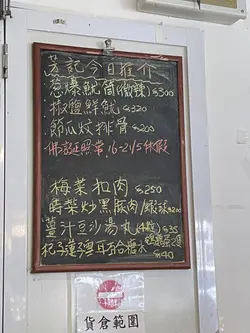 記今日推介
葱爆魷筒(微辣) $300
椒鹽鮮魷 $320
節瓜炆排骨 $200
佛誕照常 16-21/5休假
梅菜扣肉 $250
時菜炒黑豚肉/ $200
薑汁豆沙湯丸 $35
$40
貨倉範圍